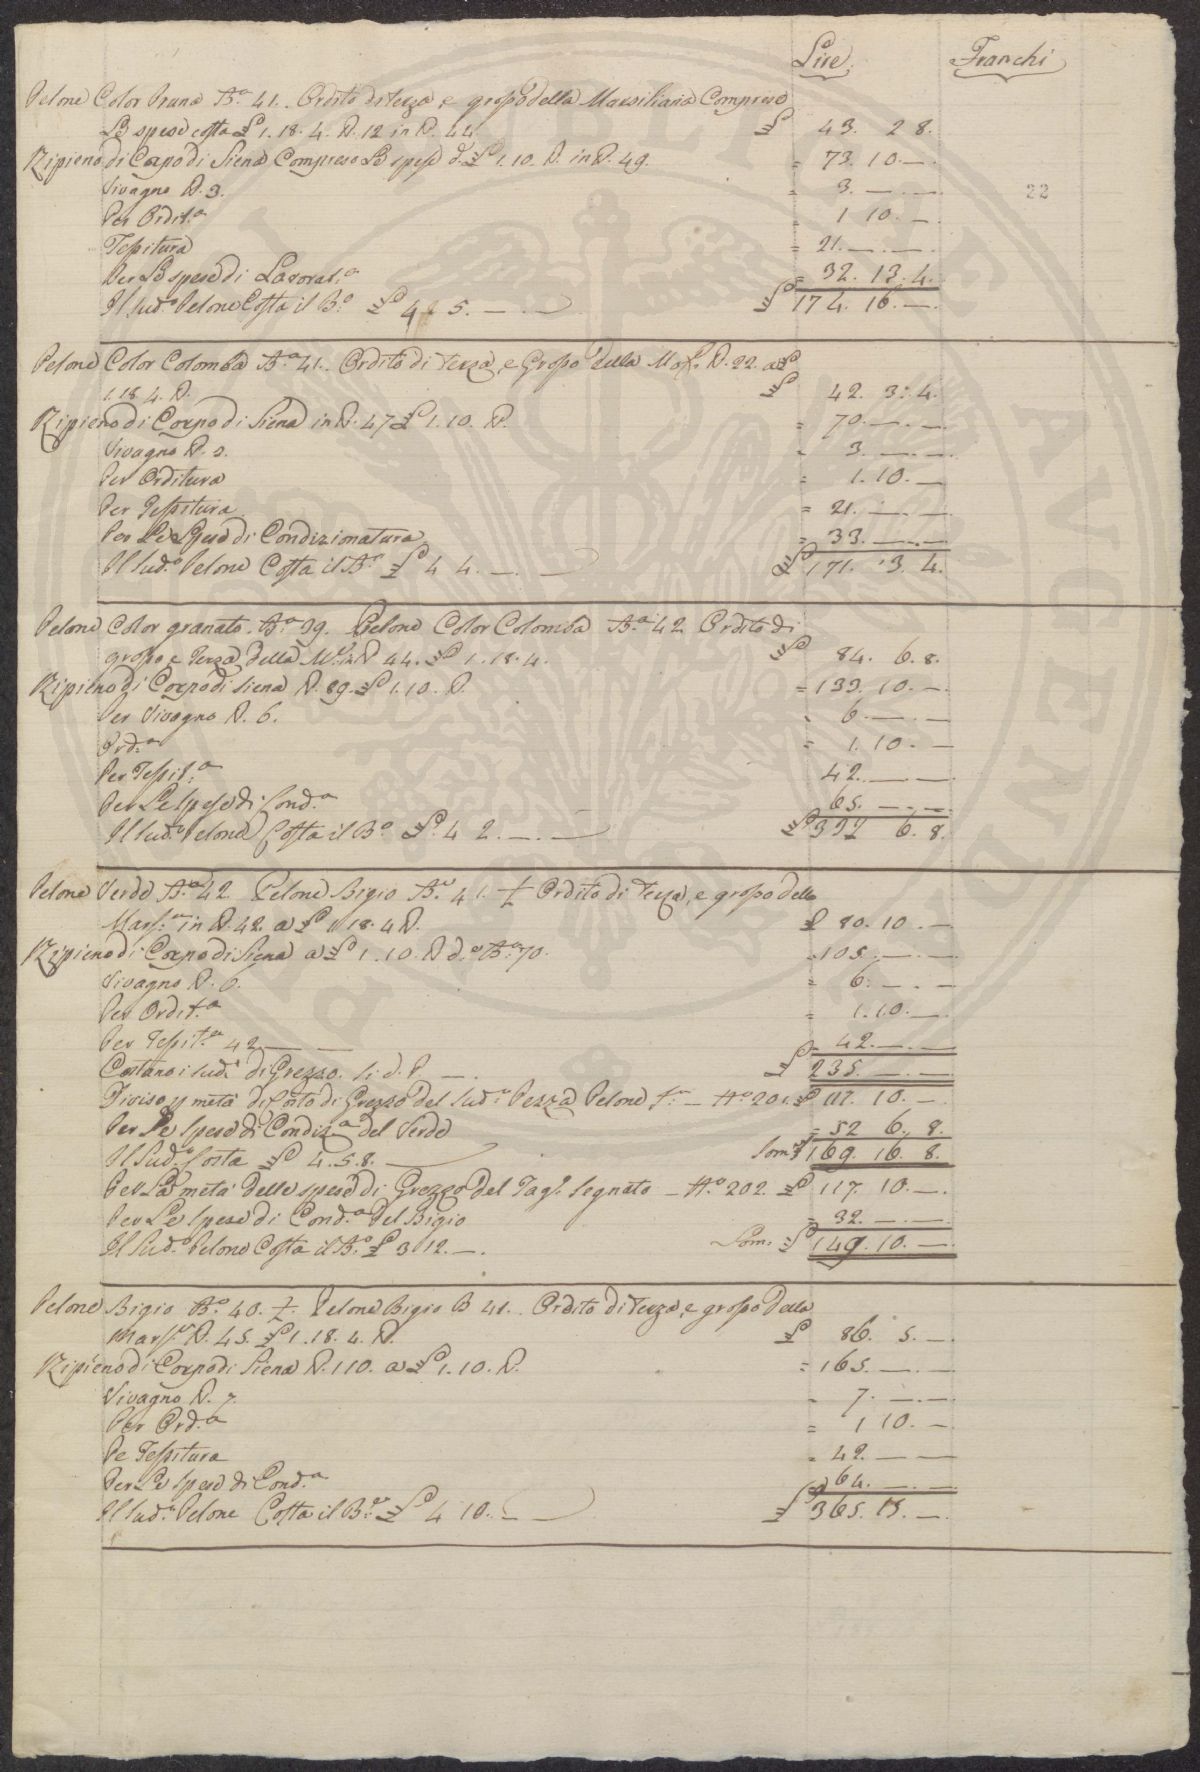 Lire Franchi
Pelone Color Pruna B.a 41. Ordito di terza, e gropo della Marsiliana Compreso
Le spese costa £ 1. 18. 4. P. 12 in P. 44. £ 43. 2 8.
Ripieno di Corpo di Siena Compreso Le spese d. £ 1. 10. P. in P. 49. = 73. 10. —
22
Vivagno P. 3. = 3. — —
Per Ordit.a = 1 10. —
Tessitura = 21. — —
Per Le spese di Lavorat.a = 32. 13. 4.
Il Sud.o Pelone Costa il B.o £ 4 2 5. — — £ 174. 16. —
Pelone Color Colomba B.a 41. Ordito di Terza, e Gropo della Mars. P. 22. a £
1. 18 4. P. £ 42. 3. 4.
Ripieno di Corpo di Siena in P. 47 £ 1. 10. P. = 70. — —
Vivagno P. 3. = 3. — —
Per Orditura = 1. 10. —
Per Tessitura = 21. — —
Per Le Spese di Condizionatura = 33. — —
Il Sud.o Pelone Costa il B.o £ 4 4. — — £ 171. 3. 4.
Pelone Color granato B.a 39. Pelone Color Colomba B.a 42 Ordito di
gropo e Terza della M.a in P 44. £ 1. 18. 4. £ 84. 6. 8.
Ripieno di Corpo di Siena P. 89. £ 1. 10. P. = 133. 10. —
Per Vivagno P. 6. = 6. — —
Ord.a = 1. 10. —
Per Tessit.a 42. — —
Per Le Spese di Cond.a 65. — —
Il Sud.o Pelone Costa il B.o £ 4 2. — — £ 332 6. 8.
Pelone Verde B.a 42. Pelone Bigio B.a 41. ½ Ordito di Terza, e gropo della
Mars.a in P. 42. a £ 1. 18. 4 P. £ 80. 10. —
Ripieno di Corpo di Siena a £ 1. 10. P d.o B.a 70. = 105. — —
Vivagno P. 6. = 6. — —
Per Ordit.a = 1. 10. —
Per Tessit.a 42 — — = 42. — —
Costano i sud.i di Grezzo £ 235. — —
Diviso p metà di Costo di Grezzo del Sud.o Pezza Pelone — N.o 201. £ 117. 10. —
Per Le Spese di Condiz.a del Verde = 52 6. 8.
Il Sud.o Costa £ 4. 5. 8. — Som: £ 169. 16. 8.
Per La metà delle spese di Grezzo del Tagl. Segnato — N.o 202. £ 117. 10. —
Per Le Spese di Cond.a del Bigio = 32. — —
Il Sud.o Pelone Costa il B.o £ 3 12. — Som: £ 149. 10. —
Pelone Bigio B.a 40. ½. Pelone Bigio B 41. Ordito di terza, e gropo della
Mars.a P. 45. £ 1. 18. 4. P. £ 86. 5. —
Ripieno di Corpo di Siena P. 110. a £ 1. 10. P. = 165. — —
Vivagno P. 7. = 7. — —
Per Ord.a = 1 10. —
Pe Tessitura = 42. — —
Per Le Spese di Cond.a 64. — —
Il Sud.o Pelone Costa il B.o £ 4 10. — £ 365. 15. —